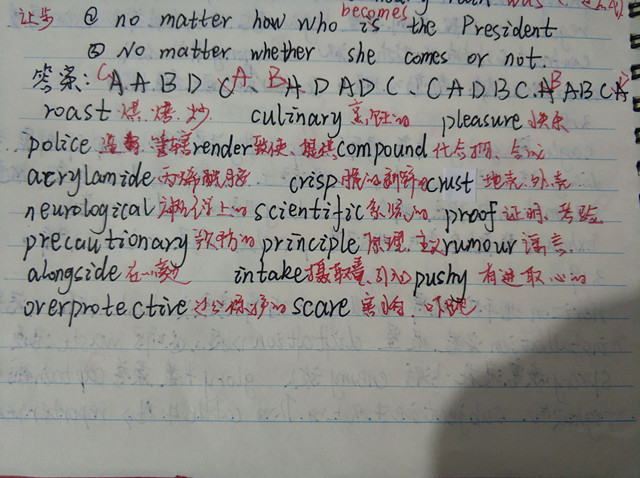 becomes
让步 ① no matter how who is the President
② No matter whether she comes or not.
答案: C A A B D C A、B A D A D C、C A D B C A B A B C A
roast 烘烤 炒 culinary 烹饪的 pleasure 快乐
police 监督 管辖 render 致使、提供 compound 化合物、合成
acrylamide 丙烯酰胺 crisp 脆的 新鲜 crust 地壳、外壳
neurological 神经学上的 scientific 系统的 proof 证明、考验
precautionary 预防的 principle 原理、主义 rumour 谣言
alongside 在…旁边 intake 摄取量、引入 pushy 有进取心的
overprotective 过分保护的 scare 害怕、吓跑